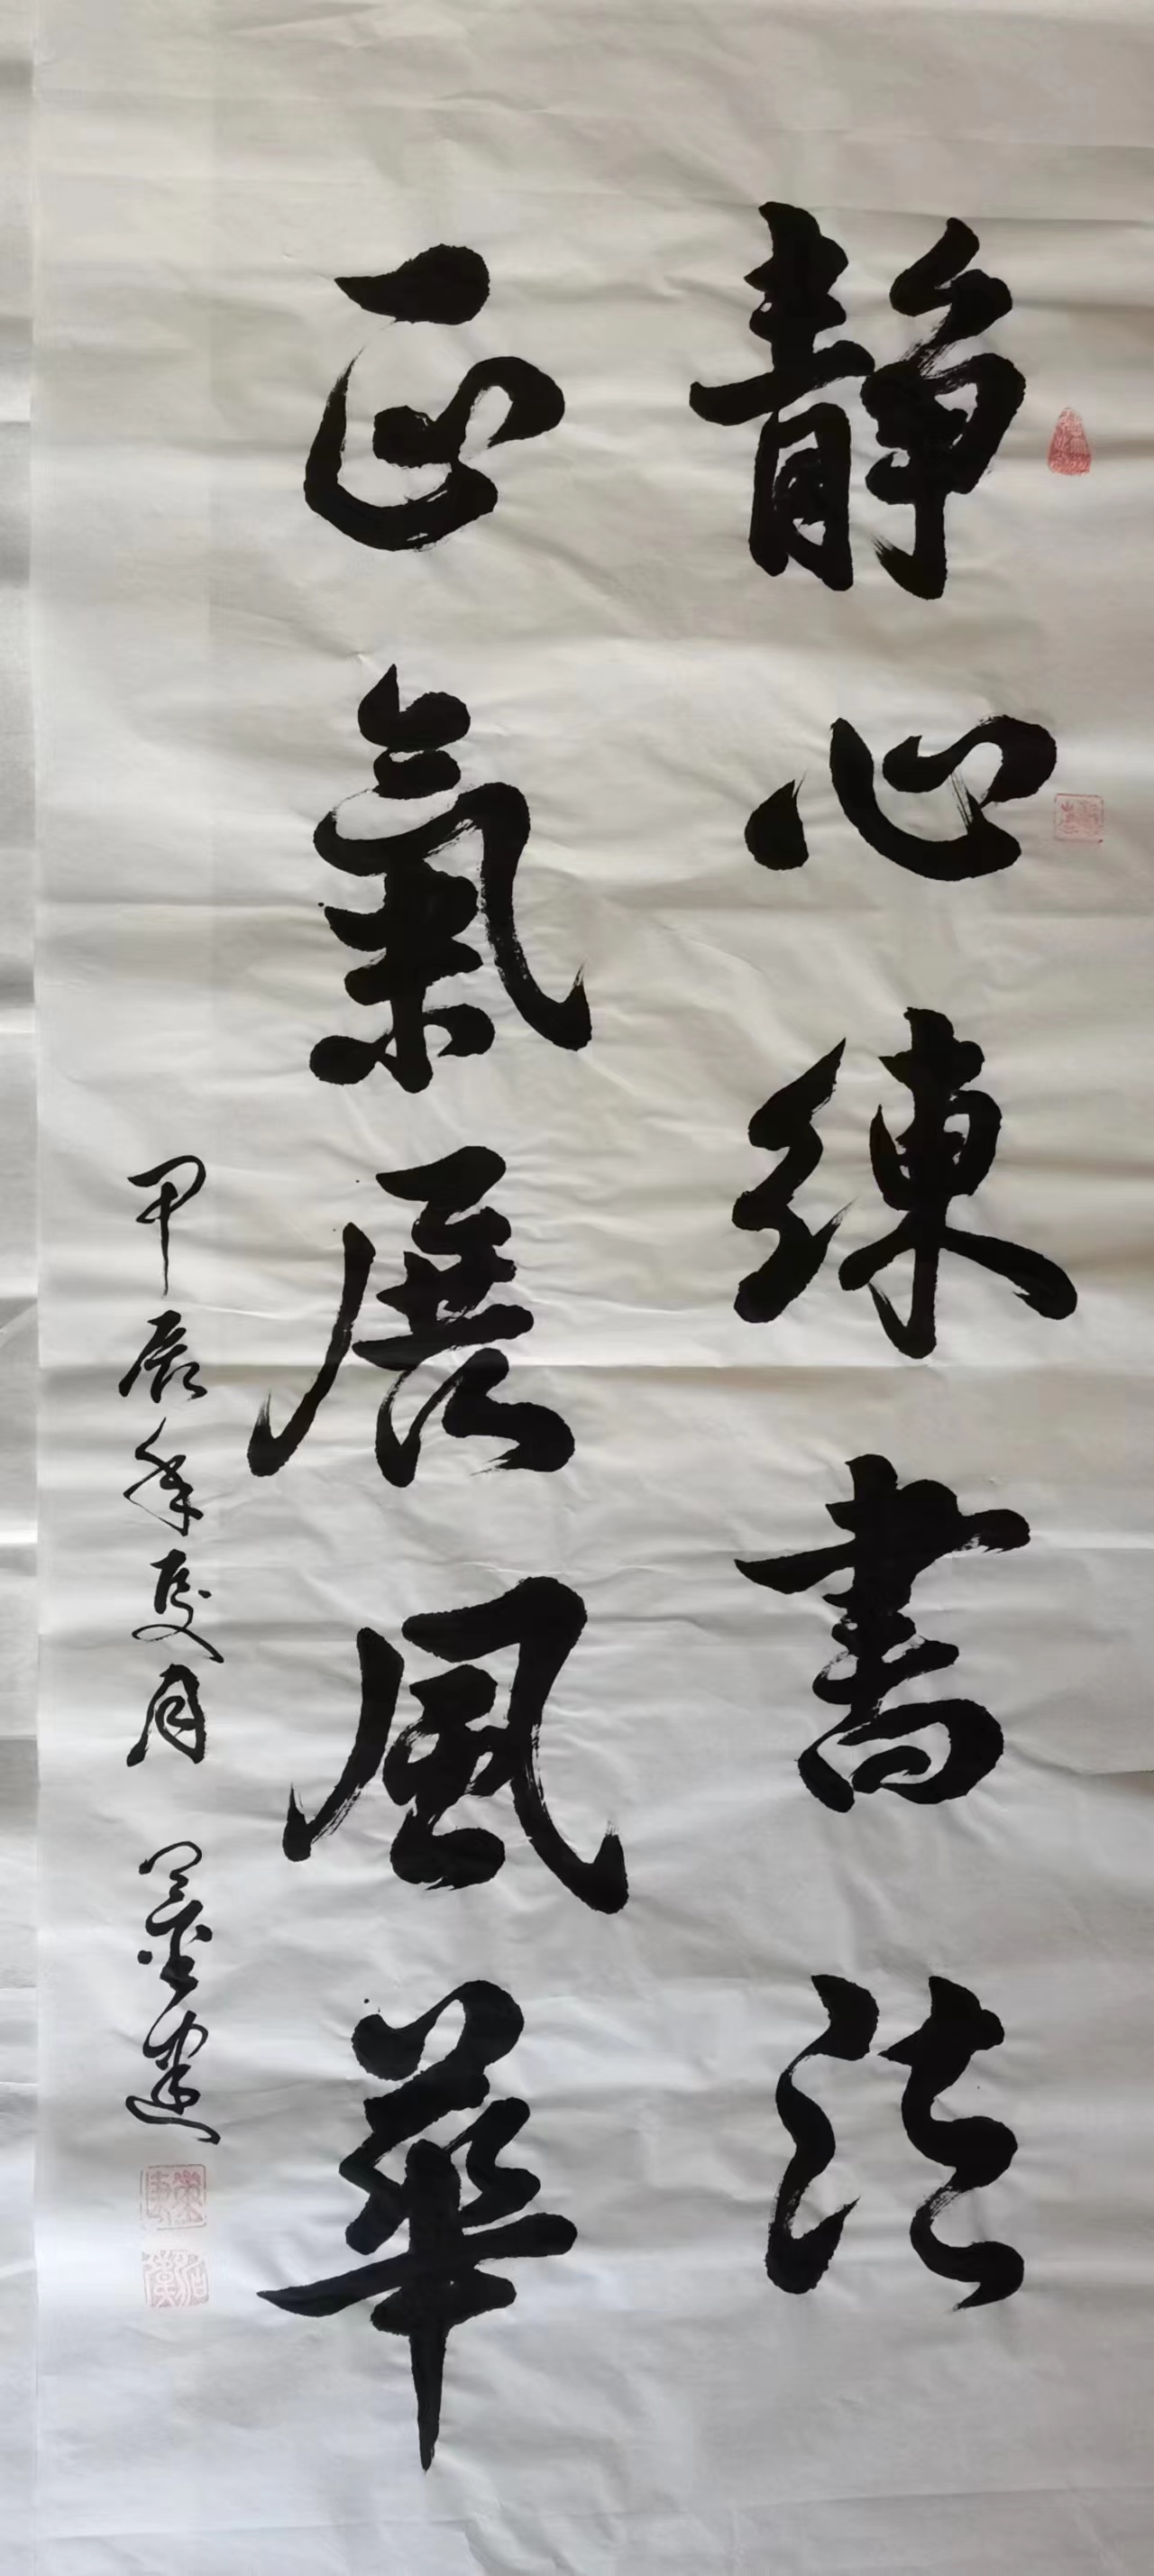 静心練書法
正氣展風華
甲辰年夏月